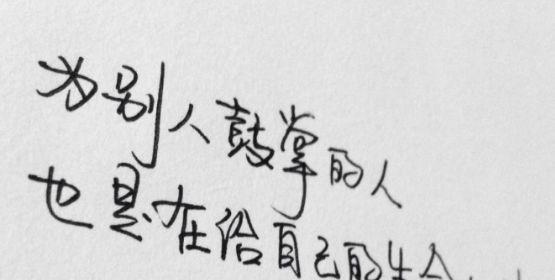 为别人鼓掌的人
也是在给自己的生命